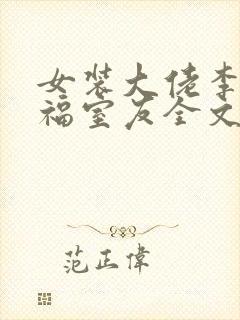 女装大佬李
福室友全文
范正伟